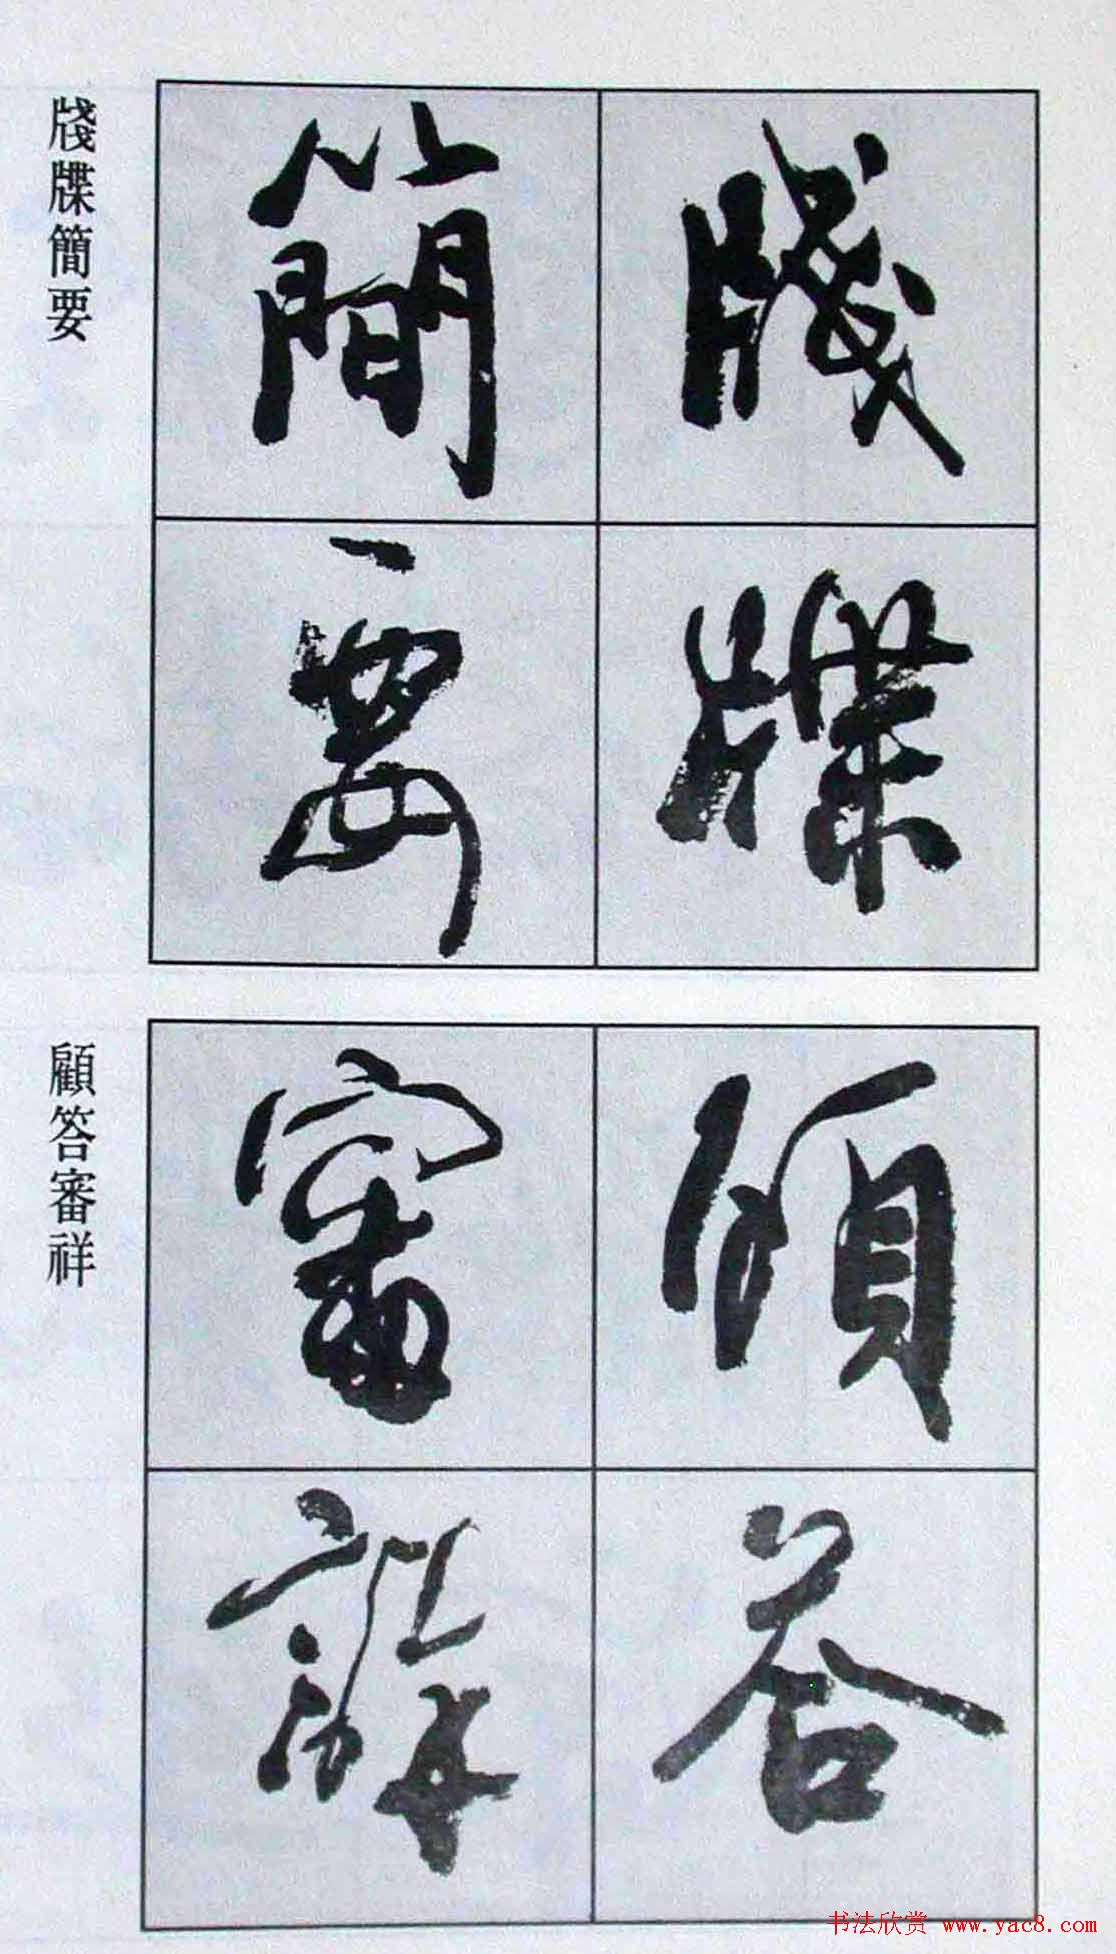 牋牒簡要
牋牒簡要
顧答審詳
顧答審祥
书法欣赏 www.yac8.com